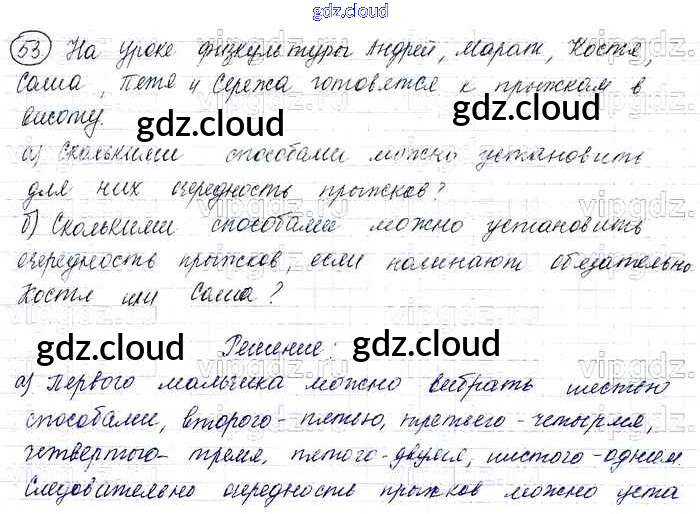 gdz.cloud
53. На уроке физкультуры Андрей, Марат, Костя,
Саша, Петя и Сережа готовятся к прыжкам в
высоту.
gdz.cloud gdz.cloud
а) Сколькими способами можно установить
для них очередность прыжков?
б) Сколькими способами можно установить
очередность прыжков, если начинают обязательно
Костя или Саша?
gdz.cloud Решение: gdz.cloud
а) Первого мальчика можно выбрать шестью
способами, второго - пятью, третьего - четырмя,
четвертого - тремя, пятого - двумя, шистого - одним.
Следовательно очередность прыжков можно уста